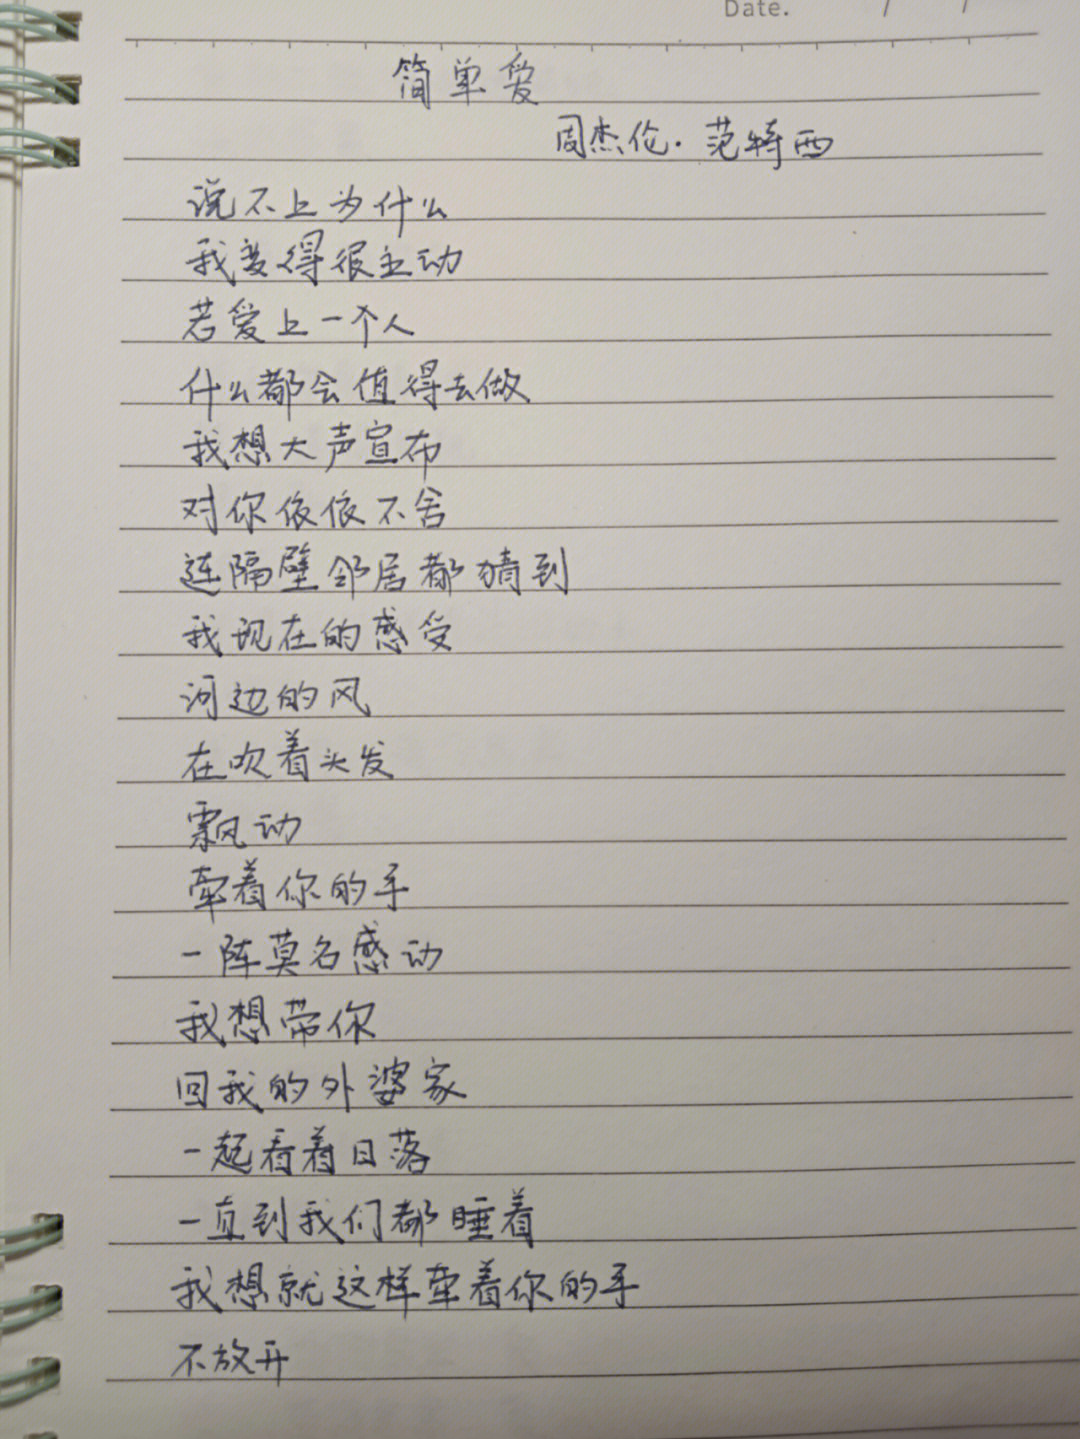 Date. / /
简单爱
周杰伦·范特西
说不上为什么
我变得很主动
若爱上一个人
什么都会值得去做
我想大声宣布
对你依依不舍
连隔壁邻居都猜到
我现在的感受
河边的风
在吹着头发
飘动
牵着你的手
一阵莫名感动
我想带你
回我的外婆家
一起看着日落
一直到我们都睡着
我想就这样牵着你的手
不放开